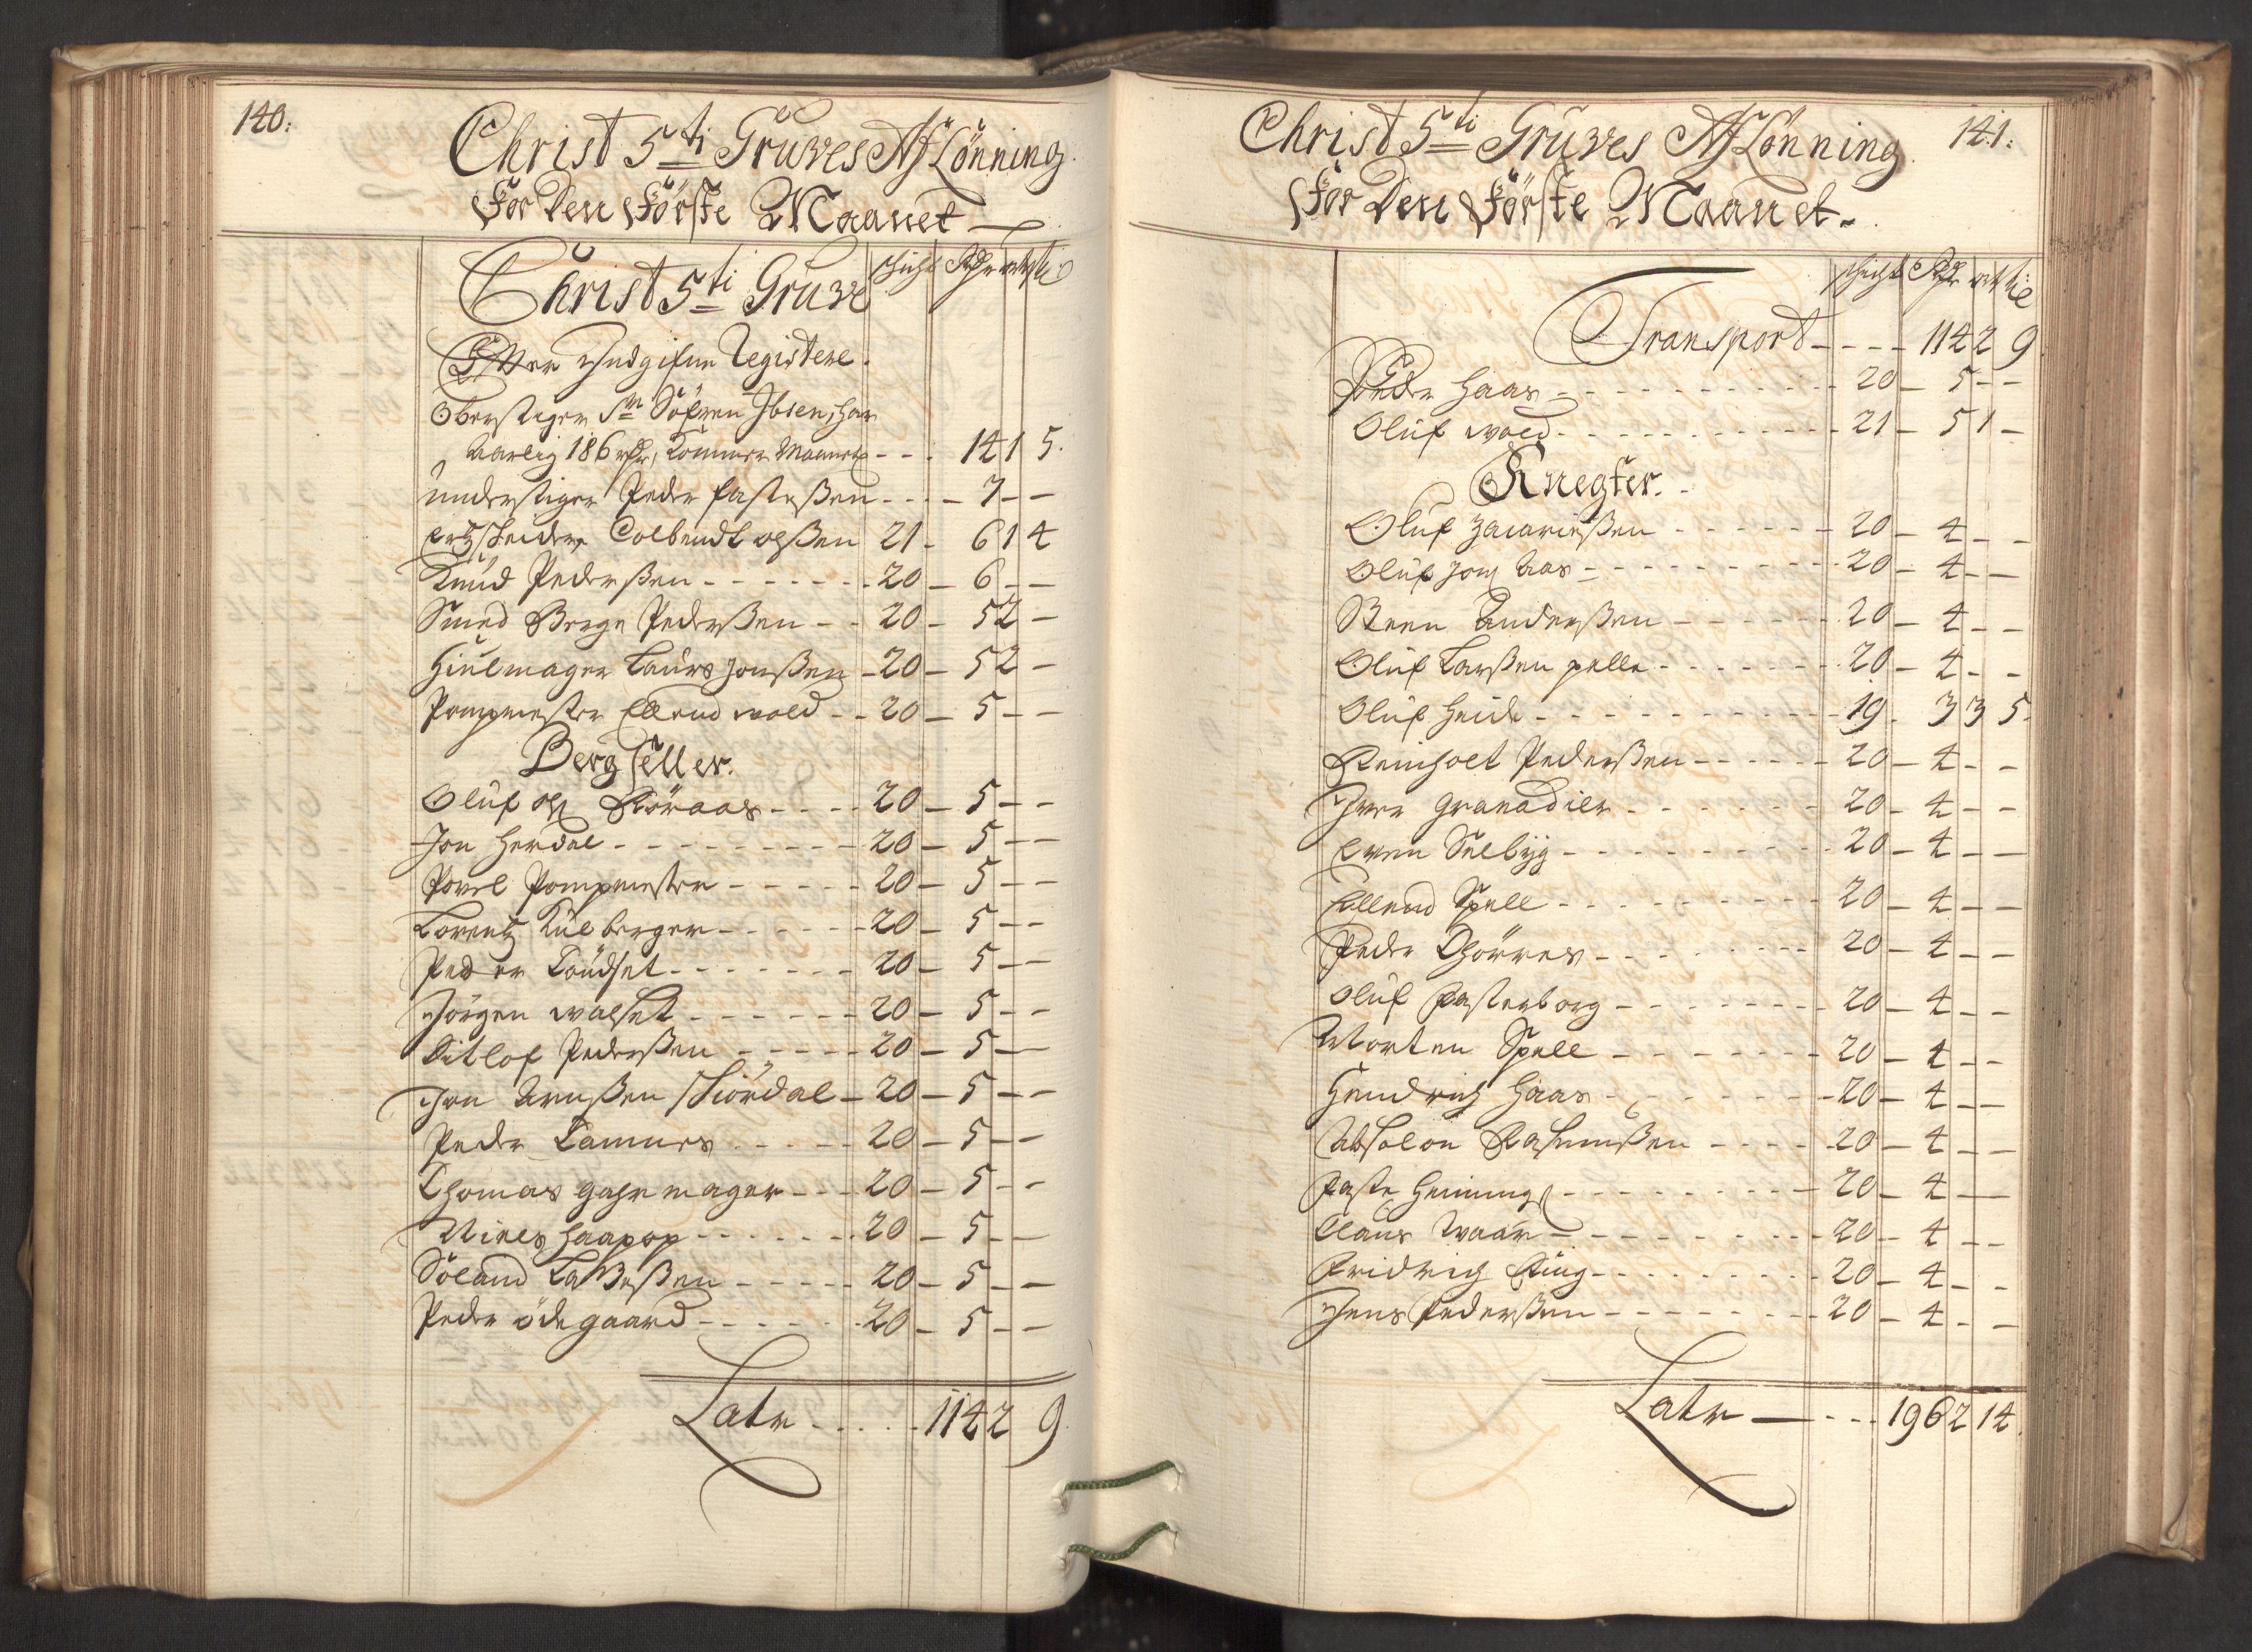 140:
Christ 5ti Gruves Af Lönning
For Den Förste Maanet
Christ 5ti Gruve schicht Rdr ort ß
Efter Indgifne Registere.
Oberstiger Sr Söfren Ibsen, har
Aarlig 186 rdr, kommer Maanetl - - - 14 1 5.
Understiger Peder Fasteßen - - - 7 - -
Ertzscheider Colbendt olßen 21 - 6 1 4
Knud Pederßen - - - 20 - 6 - -
Smed Berge Pederßen - - 20 - 5 2 -
Hiulmager Laurs Jonßen - 20 - 5 2 -
Pompmester Ellend wold - - 20 - 5 - -
Berg seller.
Oluf ols Röraas - - - 20 - 5 - -
Jon Herdal - - - 20 - 5 - -
Povel Pompmester - - - 20 - 5 - -
Lorentz Kulberger - - - 20 - 5 - -
Peder Töndset - - - 20 - 5 - -
Jörgen walset - - - 20 - 5 - -
Ditlof Pederßen - - - 20 - 5 - -
Jon Arnßen Stiördal - 20 - 5 - -
Peder Tamnes - - - 20 - 5 - -
Thomas gahrmager - - - 20 - 5 - -
Niels Haapop - - - 20 - 5 - -
Söland Laßeßen - - - 20 - 5 - -
Peder ödegaard - - - 20 - 5 - -
Latr - - - 114 2 9.
Christ 5ti Gruves Af Lönning. 141.
For Den Förste Maanet.
schicht Rdr ort ß
Transport - - - 114 2 9.
Peder Haas - - - 20 - 5 - -
Oluf wold - - - 21 - 5 1 -
Knegter.
Oluf Zacarießen - - - 20 - 4 - -
Oluf Jons Aas - - - 20 - 4 - -
Steen Anderßen - - - 20 - 4 - -
Oluf Larßen pelle - - - 20 - 4 - -
Oluf Heide - - - 19 - 3 3 5.
Reinholt Pederßen - - - 20 - 4 - -
Iver Granadier - - - 20 - 4 - -
Even Selbÿg - - - 20 - 4 - -
Ellend Spell - - - 20 - 4 - -
Peder Thörres - - - 20 - 4 - -
Oluf Fasterborg - - - 20 - 4 - -
Morten Spell - - - 20 - 4 - -
Hendrich Haas - - - 20 - 4 - -
Absolon Rasmußen - - - 20 - 4 - -
Faste Hemmings - - - 20 - 4 - -
Claus Waar - - - 20 - 4 - -
Fridrich Ring - - - 20 - 4 - -
Jens Pederßen - - - 20 - 4 - -
Latr - - - 196 2 14.